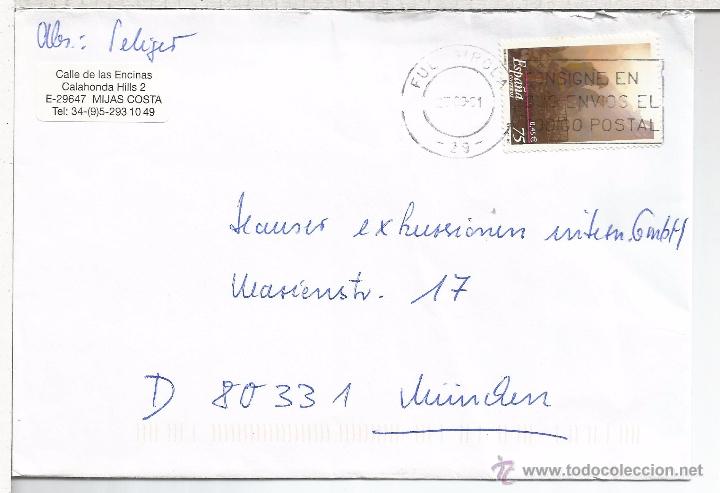 Abs.: Seliger
Calle de las Encinas
Calahonda Hills 2
E-29647 MIJAS COSTA
Tel: 34-(9)5-293 10 49
FUENGIROLA
- 29 -
España
0,45 €
75
CONSIGNE EN
SUS ENVIOS EL
CODIGO POSTAL
Hauser exkursionen intern. GmbH
Marienstr. 17
D 80331 München
www.todocoleccion.net